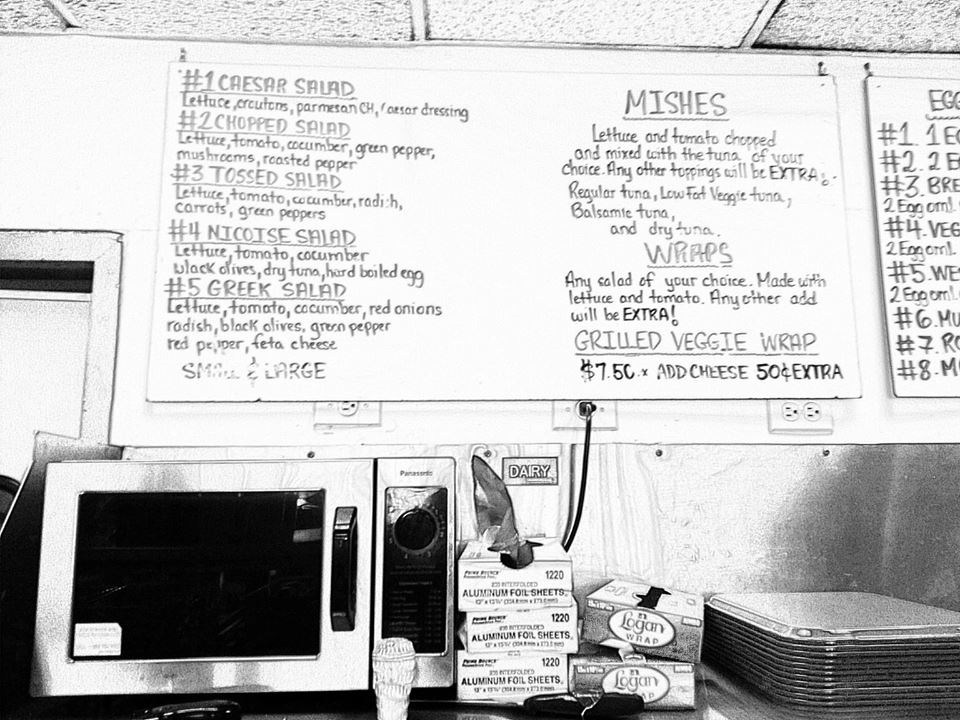 #1 CAESAR SALAD
Lettuce, croutons, parmesan CH, Caesar dressing
#2 CHOPPED SALAD
Lettuce, tomato, cocumber, green pepper,
mushrooms, roasted pepper
#3 TOSSED SALAD
Lettuce, tomato, cocumber, radish,
carrots, green peppers
#4 NICOISE SALAD
Lettuce, tomato, cocumber
black olives, dry tuna, hard boiled egg
#5 GREEK SALAD
Lettuce, tomato, cocumber, red onions
radish, black olives, green pepper
red pepper, feta cheese
SMALL & LARGE
MISHES
Lettuce and tomato chopped
and mixed with the tuna of your
choice. Any other toppings will be EXTRA!
Regular tuna, Low Fat Veggie tuna,
Balsamic tuna,
and dry tuna.
WRAPS
Any salad of your choice. Made with
lettuce and tomato. Any other add
will be EXTRA!
GRILLED VEGGIE WRAP
$7.50 ADD CHEESE 50¢ EXTRA
EGG
#1. 1 EG
#2. 2 E
#3. BRE
2 Egg oml.
#4. VEG
2 Egg oml.
#5. WES
2 Egg oml.
#6. MU
#7. RO
#8. M
Panasonic
DAIRY
PRIME SOURCE 1220
ALUMINUM FOIL SHEETS
PRIME SOURCE 1220
ALUMINUM FOIL SHEETS
PRIME SOURCE 1220
200 INTERFOLDED
ALUMINUM FOIL SHEETS
Logan
WRAP
Logan
WRAP